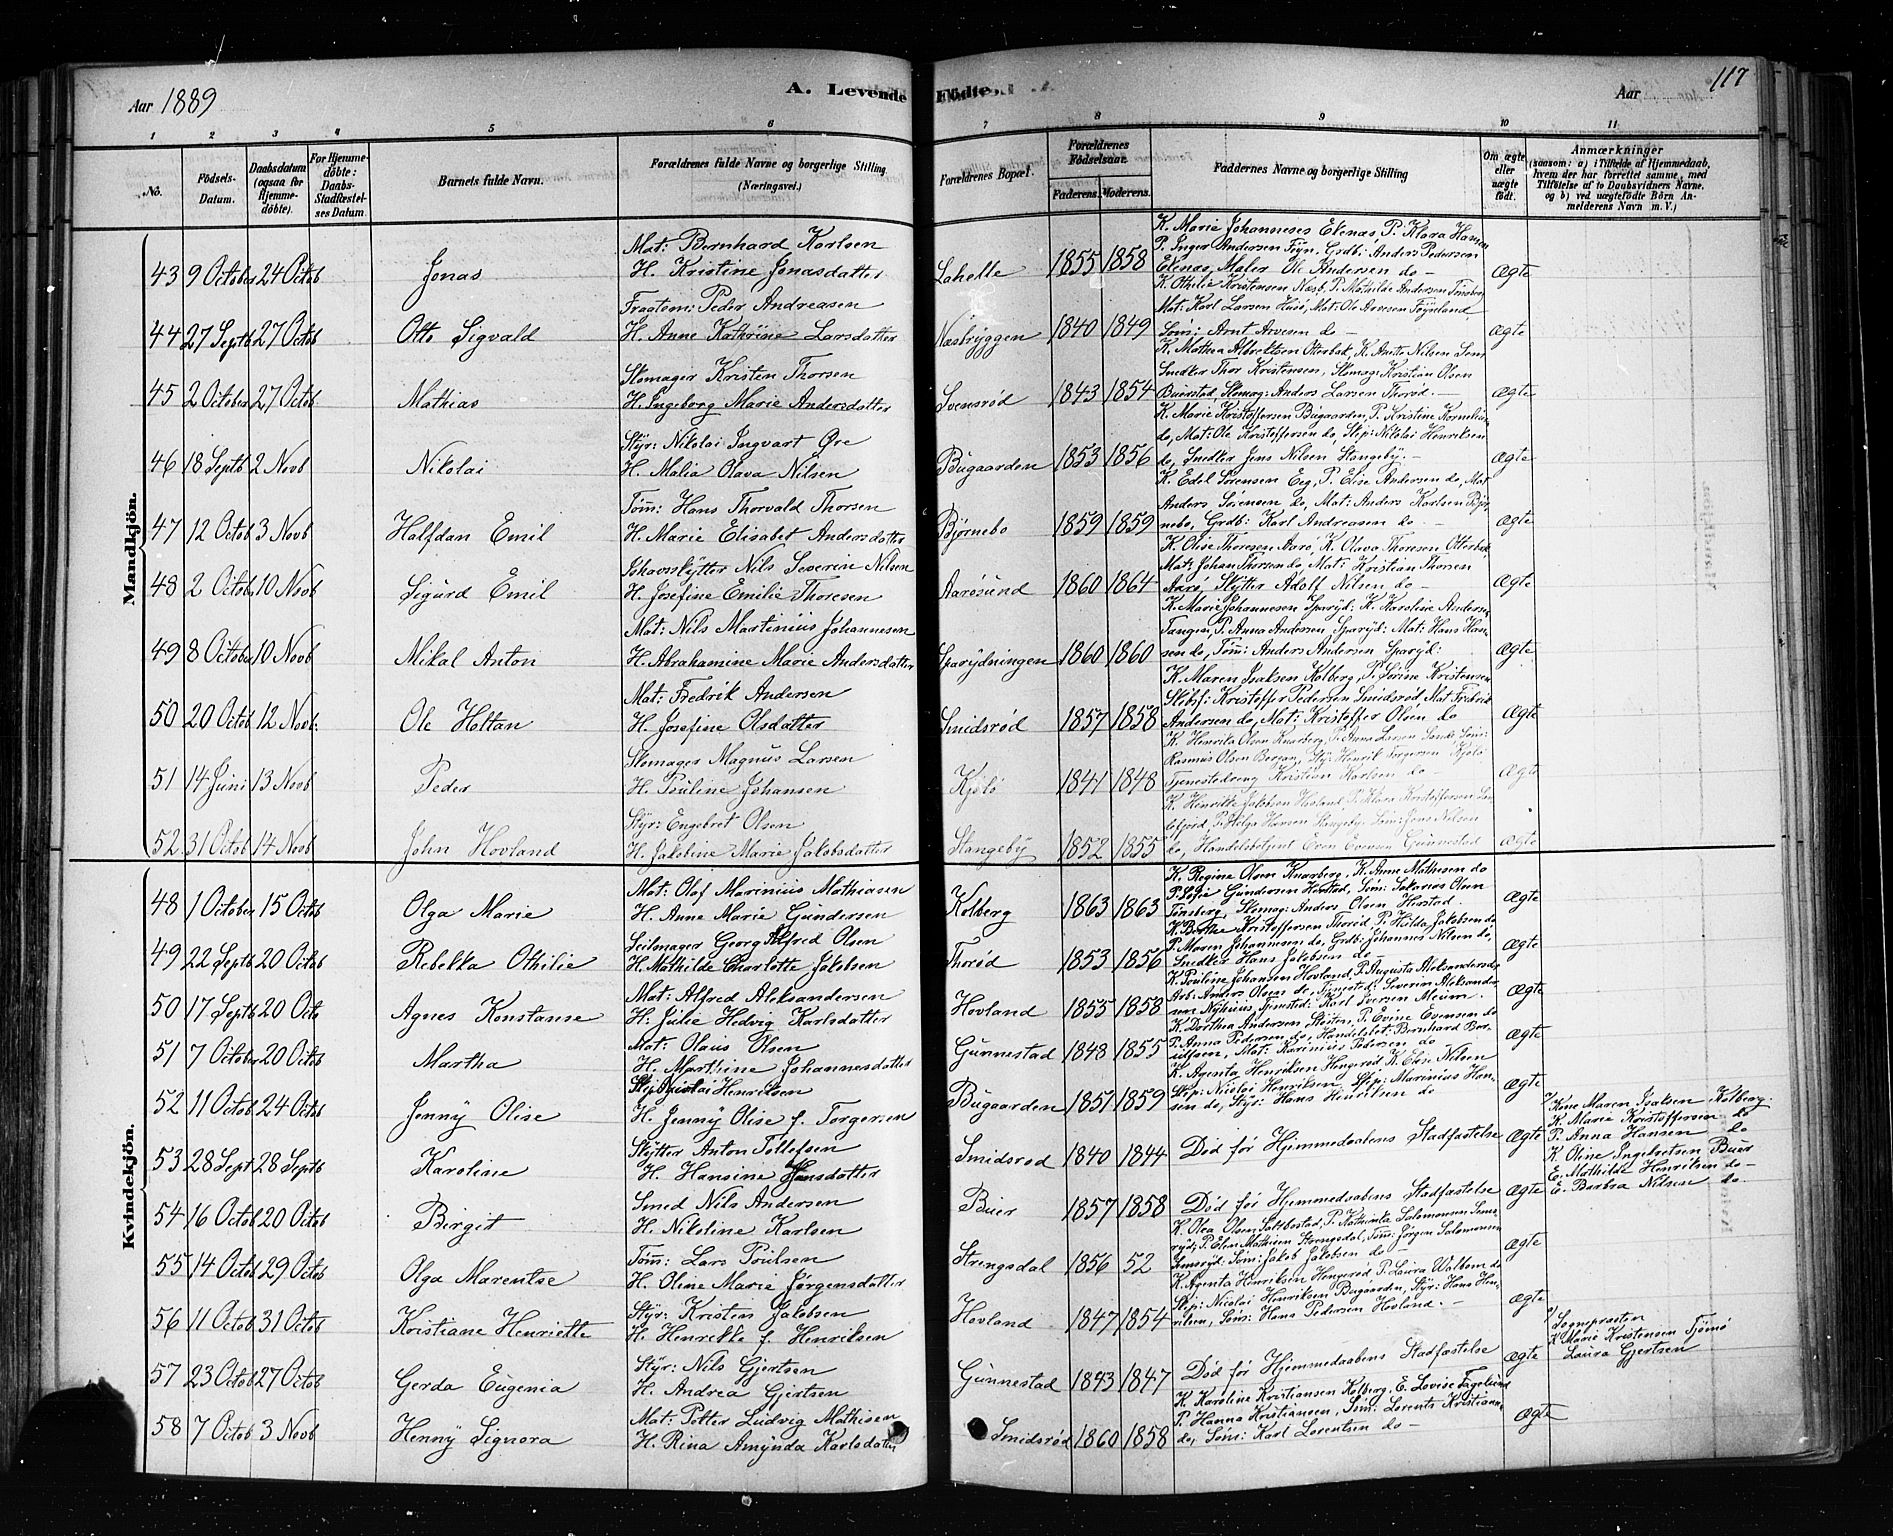 Aar 1889
A. Levende Födte.
Aar
117
1 2 3 4 5 6 7 8 9 10 11
No.
Födsels-Datum.
Daabsdatum (ogsaa for Hjemme-döbte).
For Hjemme-döbte: Daabs-Stadfæstel-ses Datum.
Barnets fulde Navn.
Forældrenes fulde Navne og borgerlige Stilling (Næringsvei.)
Forældrenes Bopæl.
Forældrenes Födselsaar.
Faderens. Moderens.
Faddernes Navne og borgerlige Stilling
Om ægte eller uægte födt.
Anmærkninger
(saasom: a) i Tilfælde af Hjemmedaab, hvem der har forrettet samme, med Tilföielse af to Daabsvidners Navne, og b) ved uægtefödte Börn An-melderens Navn m. V.)
Mandkjön.
43 9 October 24 Octob Jonas
Mat: Bernhard Karlsen
H. Kristine Jonasdatter
Lahelle 1855 1858
K. Marie Johanneses Ekenæs P. Klara Hansen
P. Inger Andersen Föyn, Grdb: Anders Pedersen
Ekenæs, Maler Ole Andersen do –
Ægte
44 27 Septb 27 Octob Otto Sigvald
Fragtem: Peder Andreasen
H. Anne Kathrine Larsdatter
Næsbryggen 1840 1849
K. Othilie Kristensen Næsb, P. Mathilde Andersen Tönsberg
Mat: Karl Larsen Husö, Mat: Ole Arvesen Föynland
Söm: Arnt Arvesen do –
Ægte
45 2 October 27 Octob Mathias
Skomager Kristen Thorsen
H. Ingeborg Marie Andersdatter
Svensröd 1843 1854
K. Mathea Albrektsen Otterbæk, K. Anette Nilsen
Snedker Thor Kristensen, Skomag: Kristian Olsen
Buerstad, Skomag: Anders Larsen Thoröd.
Ægte
46 18 Septb 2 Novb Nikolai
Styr: Nikolai Ingvart Öre
H. Malia Olava Nilsen
Bugaarden 1853 1856
K. Marie Kristoffersen Bugaarden, P. Kristine Kornelius
do, Mat: Ole Kristoffersen do, Skip: Nikolai Henriksen
do, Snedker Jens Nilsen Stangeby. –
Ægte
47 12 Octob 3 Novb Halfdan Emil
Töm: Hans Thorvald Thorsen
H. Marie Elisabet Andersdatter
Björnebo 1859 1859
K. Edel Sörensen Eeg, P. Elise Andersen do, Mat
Anders Sörensen do, Mat: Anders Karlsen Björ
nebo, Grdb: Karl Andreasen do –
Ægte
48 2 Octob 10 Novb Sigurd Emil
Ishavsskytter Nils Severin Nilsen
H. Josefine Emilie Thoresen
Aarösund 1860 1864
K. Olise Thoresen Aarö, K. Olava Thoresen Otterbæk
Mat: Johan Thoresen do, Mat: Kristian Thorsen
Aarö, Skytter Adolf Nilsen do –
Ægte
49 8 October 10 Novb Mikal Anton
Mat: Nils Martinius Johannesen
H. Abrahamine Marie Andersdatter
Sparydningen 1860 1860
K. Marie Johannesen Sparyd: K. Karoline Andersen
Tangen, P. Anna Andersen, Sparyd: Mat: Hans Han-
sen do, Töm: Anders Andersen Sparyd:
Ægte
50 20 Octob 12 Novb: Ole Holtan
Mat: Fredrik Andersen
H. Josefine Olsdatter
Smidsröd 1857 1858
K. Maren Isaksen Kolberg, P. Sörine Kristensen
Skibsf: Kristoffer Pedersen Smidsröd, Mat Fredrik
Andersen do, Mat: Kristoffer Olsen do
Ægte
51 14 Juni 13 Novb Peder
Skomager Magnus Larsen
H. Pauline Johansen
Kjölö 1841 1848
K. Henrika Olsen Knarberg, P. Anna Larsen Sande Söm:
Rasmus Olsen Bergan, Styr Henrik Torgersen Kjölö
Tjenestedreng Kristian Karlsen do –
Ægte
52 31 Octob 14 Novb John Hovland
Styr: Engebret Olsen
H. Jakobine Marie Jakobsdatter
Stangeby 1852 1855
K. Henritte Jakobsen Hovland, P. Klara Kristoffersen San
defjord, P. Helga Hansen Stangeby, Söm: Jens Nilsen
do, Handelsbetjent Even Evensen Gunnestad
Ægte
Kvindekjön.
48 1 October 15 Octob Olga Marie
Mat: Olaf Marinius Mathiasen
H. Anne Marie Gundersen
Kolberg 1863 1863
K. Regine Olsen Knarberg, K. Anne Mathesen do
P. Sofie Gundersen Herstad, Söm: Sakarias Olsen
Tönsberg, Skomag: Anders Olsen Herstad.
Ægte
49 22 Septb 20 Octob Rebekka Othilie
Seilmager Georg Alfred Olsen
H. Mathilde Charlotte Jakobsen
Thoröd 1853 1856
K. Berthe Kristoffersen Thoröd, P. Hilda Jakobsen do
P. Maren Johannesen do, Grdb: Johannes Nilsen do,
Snedker Hans Jakobsen do –
Ægte
50 17 Septb 20 Octo Agnes Konstanse
Mat: Alfred Aleksandersen
H: Julie Hedvig Karlsdatter
Hovland 1855 1858
K. Pouline Johansen Hovland, P. Augusta Aleksandersen do
Arb: Anders Olsen do, Tjenestd: Severin Aleksander
sen Nyhuus, Tjenstd: Karl Iversen Meum.
Ægte
51 7 October 20 Octob Martha
Mat: Olaus Olsen
H. Marthine Johannesdatter
Gunnestad 1848 1855
K. Dorthea Andersen Skosten, P. Evine Evensen do
P. Anna Pedersen do, Handelsbet: Bernhard Ber-
ulfsen, Mat: Karinius Pedersen do
Ægte
52 11 Octob 24 Octob Jenny Olise
Skip Nicolai Henriksen
H. Jenny Olise f. Torgersen
Bugaarden 1857 1859
K. Agenta Henriksen Hengeröd, K. Elise Nilsen
Skip: Nicolai Henriksen, Skip: Marinius Han-
sen do, Styr: Hans Henriksen do
Ægte
53 28 Sept 28 Septb Karoline
Skytter Anton Tollefsen
H. Hansine Hansdatter
Smidsröd 1840 1844
Död för Hjemmedaabens Stadfæstelse
Ægte
Kone Maren Isaksen Kolberg.
K. Marie Kristoffersen do
P. Anna Hansen do
54 16 Octob 20 Octob Birgit
Smed Nils Andersen
H. Nikoline Karlsen
Buer 1857 1858
Död för Hjemmedaabens Stadfæstelse
Ægte
K. Oline Ingebretsen Buer
E. Mathilde Henriksen do –
E. Barbra Nilsen do –
55 14 Octob 29 Octob Olga Marentse
Töm: Lars Poulsen
H. Oline Marie Jörgensdatter
Strengsdal 1856 52
K. Olea Olsen Saltbostad, P. Kathinka Salomonsen Lens
ryd, P. Elen Mathisen Strengsdal, Töm: Jörgen Salomonsen
Lensryd, Söm: Jakob Jakobsen do –
Ægte
56 11 Octob 31 Octob Kristiane Henriette
Styr: Kristen Jakobsen
H. Henrikke f. Henriksen
Hovland 1847 1854
K. Agenta Henriksen Hengeröd, P. Laura Walbom do
Skip: Nicolai Henriksen Bugaarden, Styr: Hans Hen-
riksen, Söm: Hans Pedersen Hovland. –
Ægte
57 23 Octob 27 Octob Gerda Eugenia
Styr: Nils Gjertsen
H. Andrea Gjertsen
Gunnestad 1843 1847
Död för Hjemmedaabens Stadfæstelse
Ægte
Sognepræsten
K Marie Kristensen Tjömö
Laura Gjertsen
58 7 Octob 3 Novb Henny Signora
Mat: Petter Ludvig Mathisen
H. Rina Amynda Karlsdatter
Smidsröd 1860 1858
K. Karoline Kristiansen Kolberg, E. Lovise Fagelund
P. Hanna Kristiansen, Söm: Lorents Kristians
do, Söm: Karl Lorentsen do –
Ægte